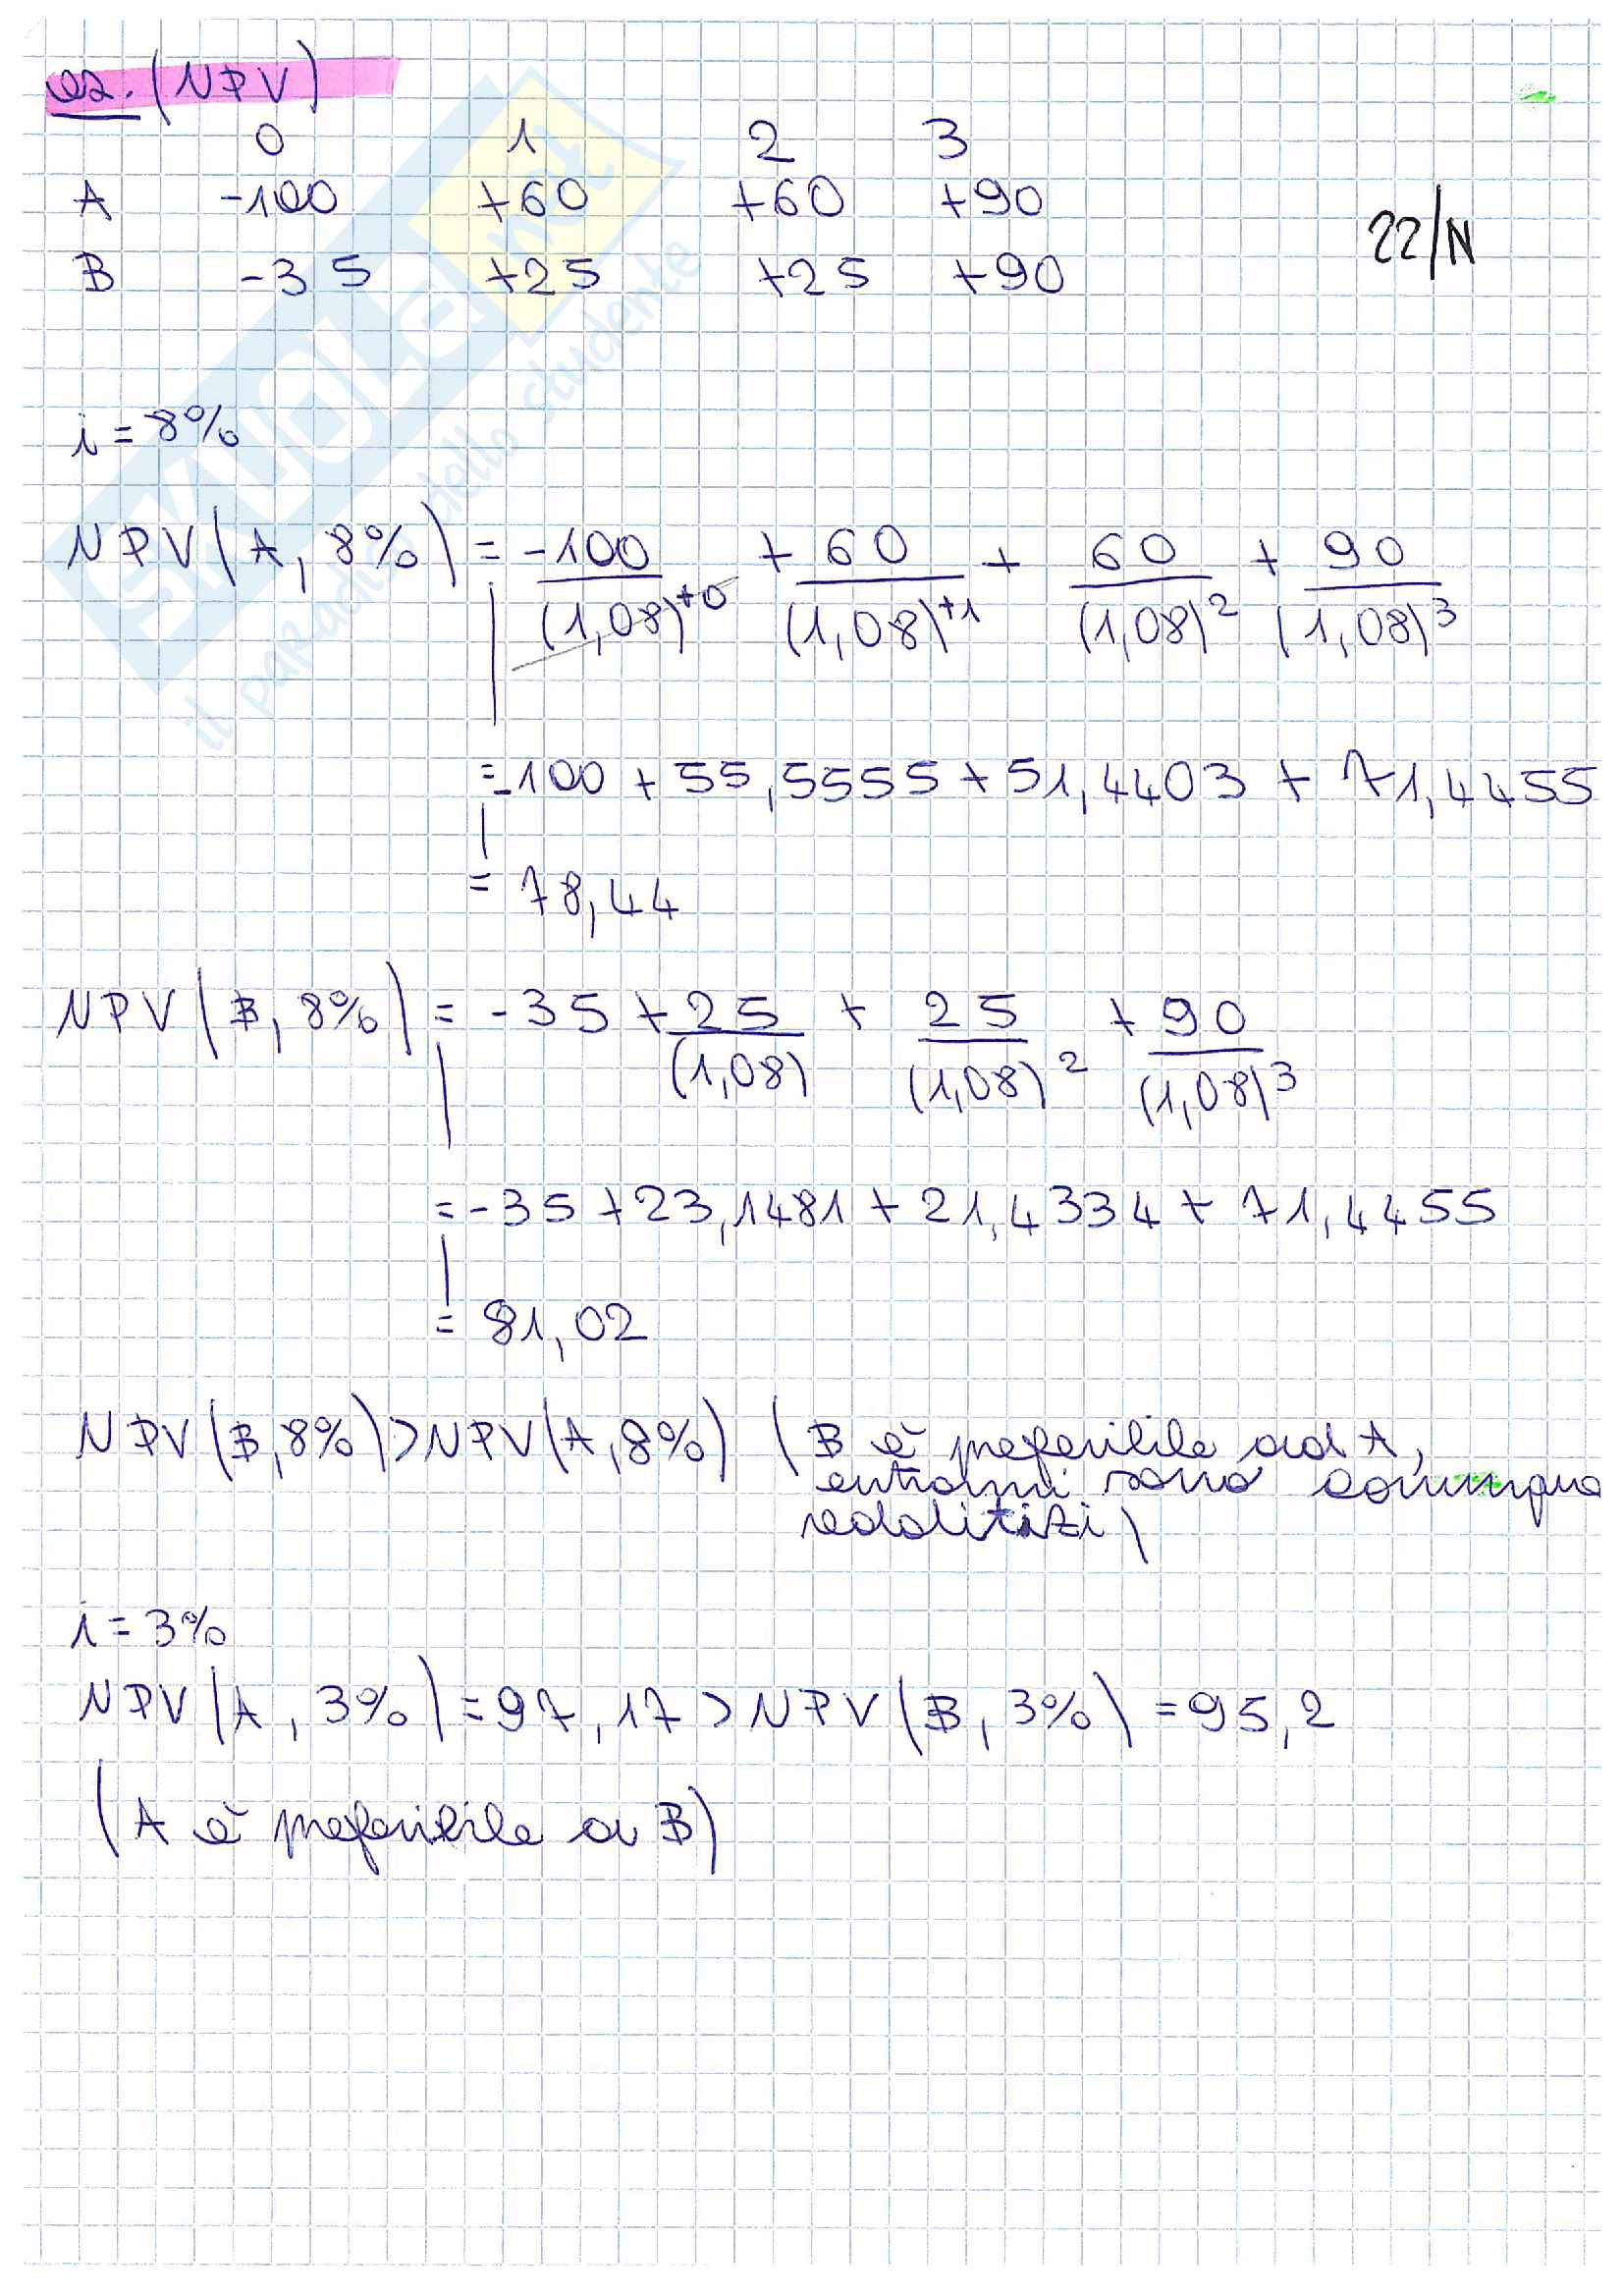 es. (NPV)
0 1 2 3
A -100 +60 +60 +90
B -35 +25 +25 +90
22/N
i = 8%
NPV (A, 8%) = -100 + 60 + 60 + 90
(1,08)^+0 (1,08)^+1 (1,08)^2 (1,08)^3
= -100 + 55,5555 + 51,4403 + 71,4455
= 78,44
NPV (B, 8%) = -35 + 25 + 25 + 90
(1,08) (1,08)^2 (1,08)^3
= -35 + 23,1481 + 21,4334 + 71,4455
= 81,02
NPV (B, 8%) > NPV (A, 8%) (B è preferibile ad A,
entrambi sono comunque
redditizi)
i = 3%
NPV (A, 3%) = 97,17 > NPV (B, 3%) = 95,2
(A è preferibile a B)
SKUOLA.net
il paradiso dello studente